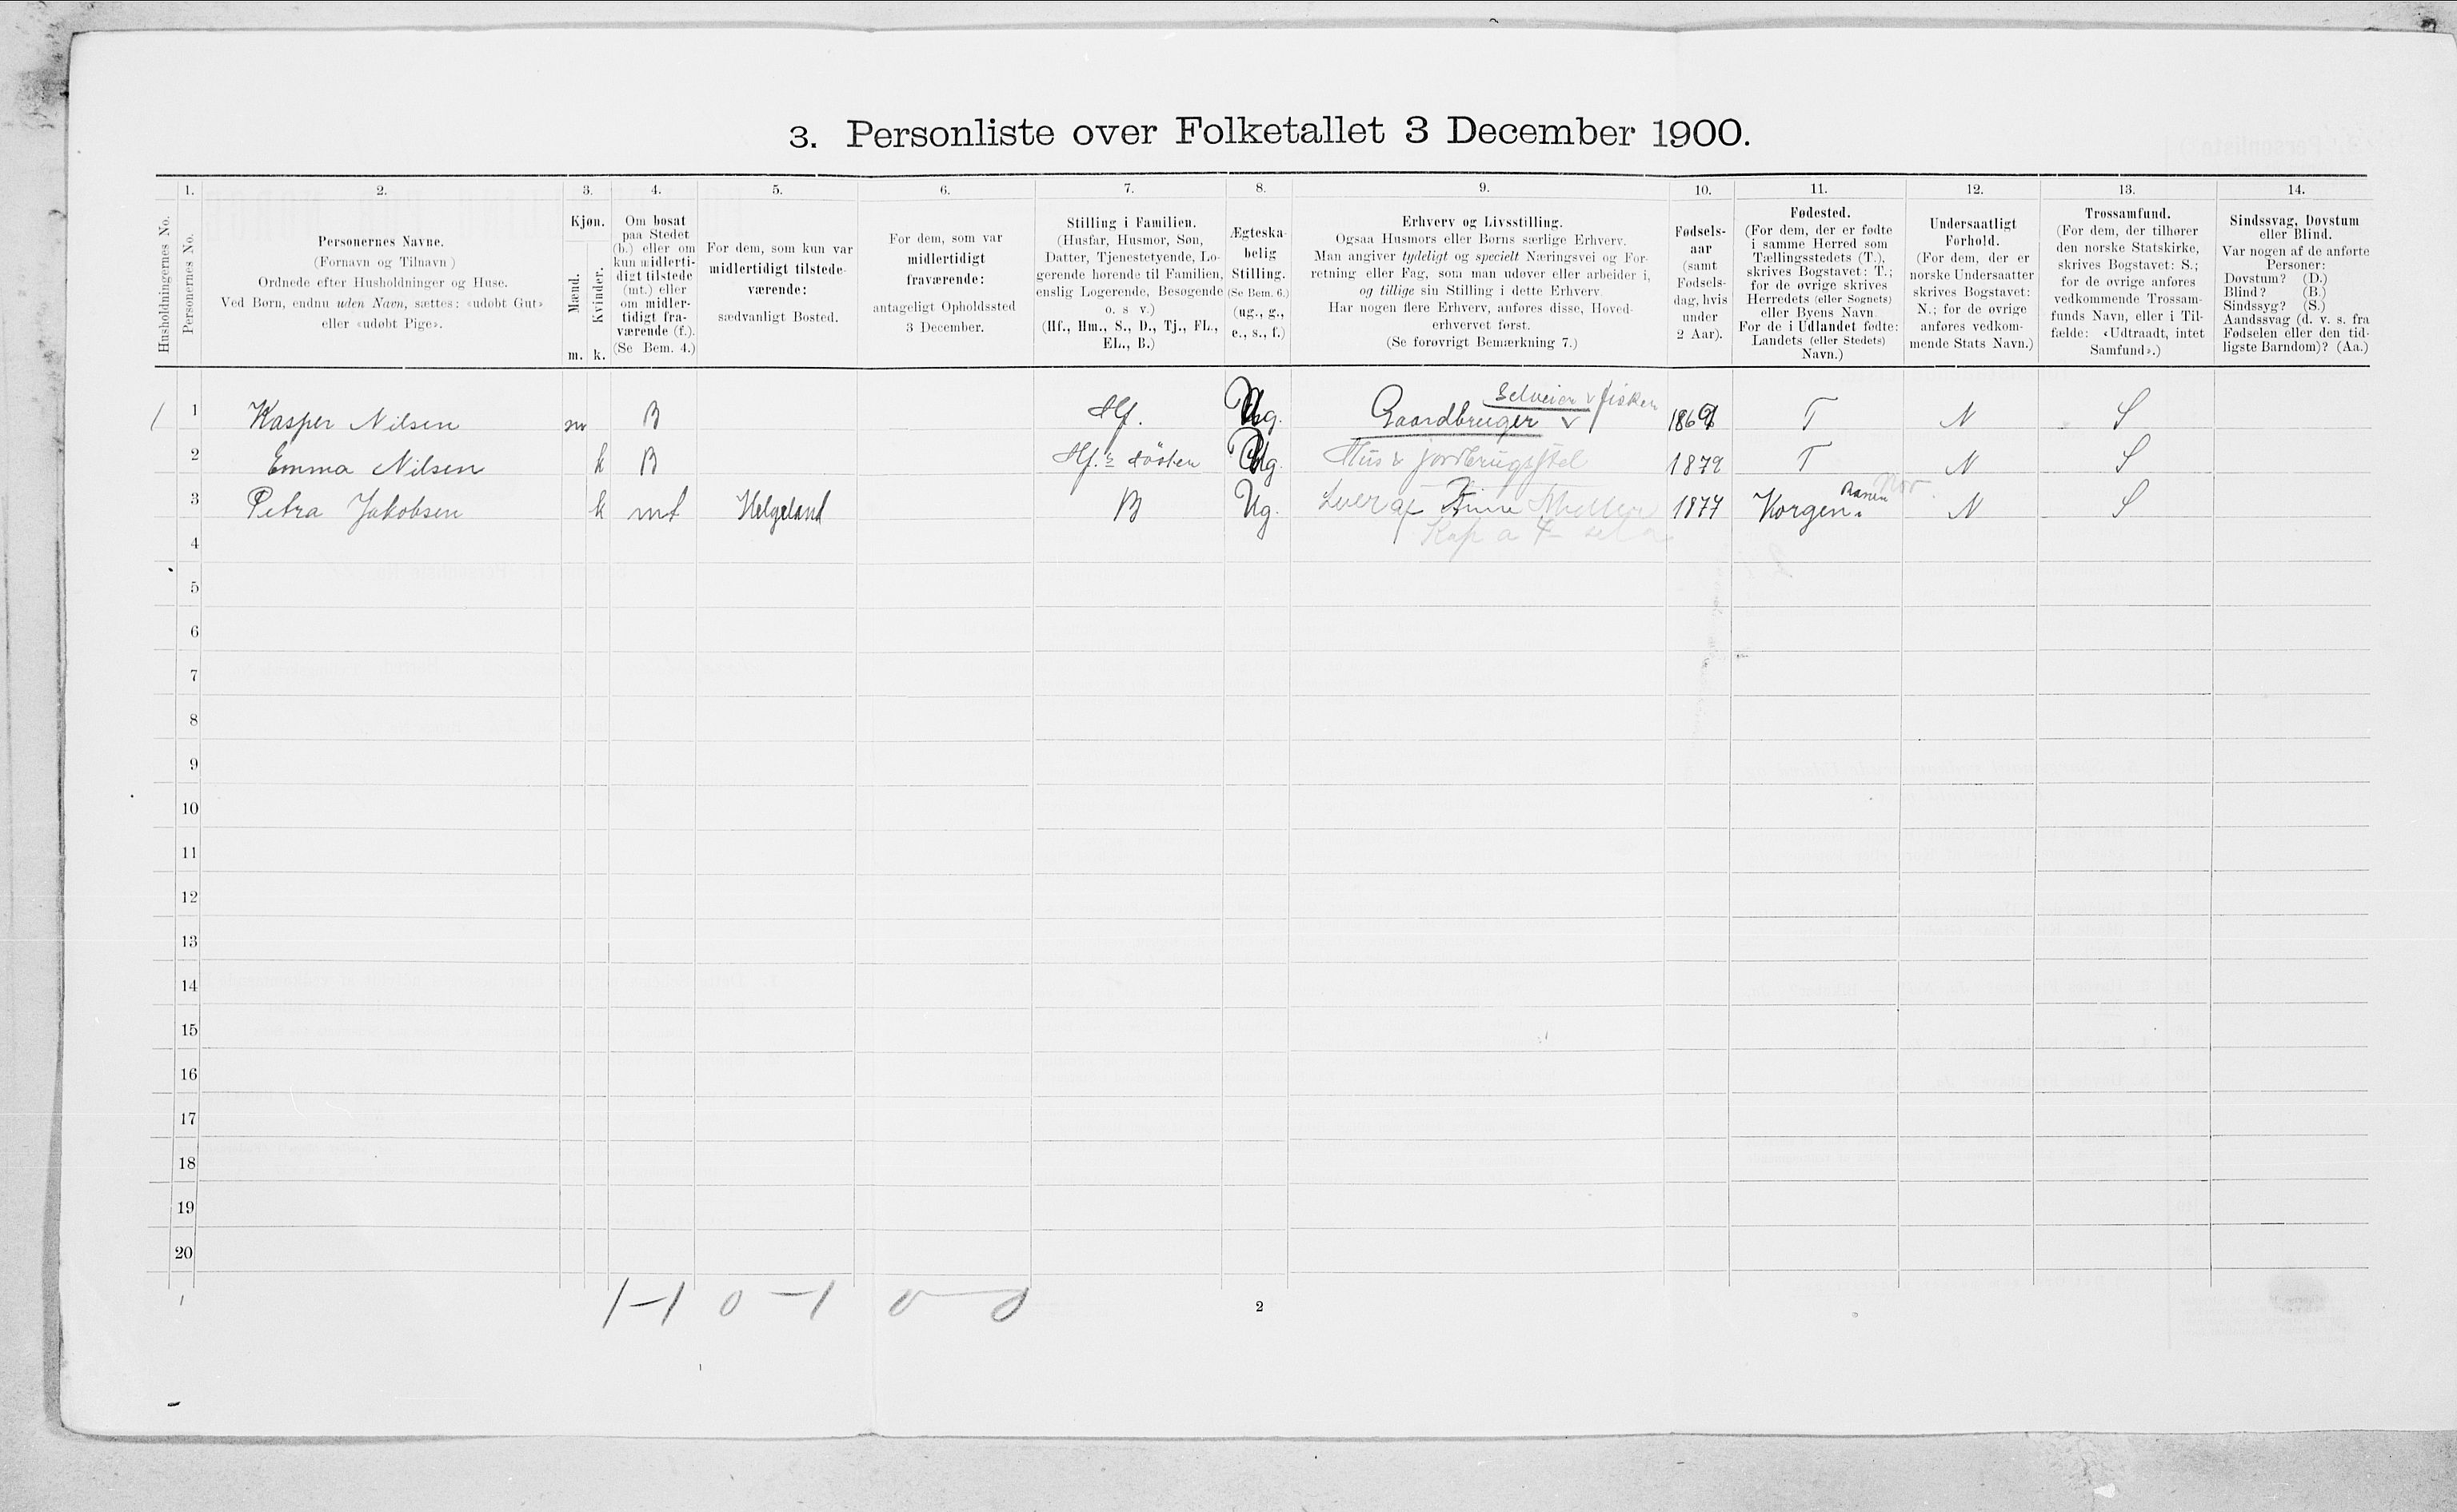 3. Personliste over Folketallet 3 December 1900.
Husholdningernes No.
1.
Personernes No.
2.
Personernes Navne.
(Fornavn og Tilnavn)
Ordnede efter Husholdninger og Huse.
Ved Børn, endnu uden Navn, sættes: «udøbt Gut»
eller «udøbt Pige».
3.
Kjøn.
Mænd.
m.
Kvinder.
k.
4.
Om bosat
paa Stedet
(b.) eller om
kun midlerti-
digt tilstede
(mt.) eller
om midler-
tidigt fra-
værende (f.).
(Se Bem. 4.)
5.
For dem, som kun var
midlertidigt tilstede-
værende:
sædvanligt Bosted.
6.
For dem, som var
midlertidigt
fraværende:
antageligt Opholdssted
3 December.
7.
Stilling i Familien.
(Husfar, Husmor, Søn,
Datter, Tjenestetyende, Lo-
gerende hørende til Familien,
enslig Logerende, Besøgende
o. s v.)
(Hf., Hm., S., D., Tj., FL.,
EL., B.)
8.
Ægteska-
belig
Stilling.
(Se Bem. 6.)
(ug., g.,
e., s., f.)
9.
Erhverv og Livsstilling.
Ogsaa Husmors eller Børns særlige Erhverv.
Man angiver tydeligt og specielt Næringsvei og For-
retning eller Fag, som man udøver eller arbeider i,
og tillige sin Stilling i dette Erhverv.
Har nogen flere Erhverv, anføres disse, Hoved-
erhvervet først.
(Se forøvrigt Bemærkning 7.)
10.
Fødsels-
aar
(samt
Fødsels-
dag, hvis
under
2 Aar).
11.
Fødested.
(For dem, der er fødte
i samme Herred som
Tællingsstedets (T.),
skrives Bogstavet: T.;
for de øvrige skrives
Herredets (eller Sognets)
eller Byens Navn.
For de i Udlandet fødte:
Landets (eller Stedets)
Navn.)
12.
Undersaatligt
Forhold.
(For dem, der er
norske Undersaatter
skrives Bogstavet:
N.; for de øvrige
anføres vedkom-
mende Stats Navn.)
13.
Trossamfund.
(For dem, der tilhører
den norske Statskirke,
skrives Bogstavet: S.;
for de øvrige anføres
vedkommende Trossam-
funds Navn, eller i Til-
fælde: «Udtraadt, intet
Samfund».)
14.
Sindssvag, Døvstum
eller Blind.
Var nogen af de anførte
Personer:
Døvstum? (D.)
Blind? (B.)
Sindssyg? (S.)
Aandssvag (d. v. s. fra
Fødselen eller den tid-
ligste Barndom)? (Aa.)
Selveier v fisker
1 1 Kasper Nilsen m B Hf. Ug. Gaardbruger v T N S
2 Emma Nilsen k B Hf.s søster Ug. Hus & jordbrugsstel 1879 T N S
3 Petra Jakobsen k mt Helgeland B Ug. Lever af 1877 Korgen. Ranen Nor. N S
4
5
6
7
8
9
10
11
12
13
14
15
16
17
18
19
20
1-1 0-1 0-0
2